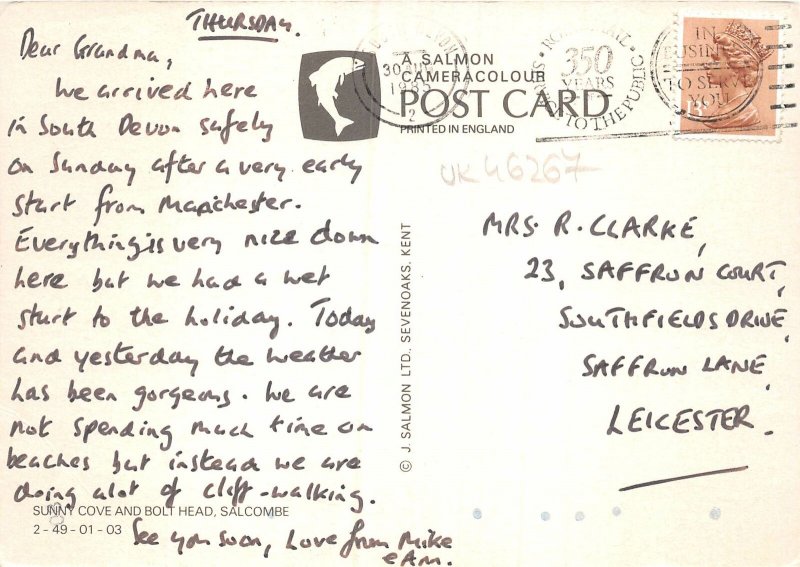 THURSDAY.
Dear Grandma,
We arrived here
in South Devon safely
on Sunday after a very early
start from Manchester.
Everything is very nice down
here but we had a wet
start to the holiday. Today
and yesterday the weather
has been gorgeous. We are
not spending much time on
beaches but instead we are
doing alot of cliff-walking.
See you soon, Love from Mike
SUNNY COVE AND BOLT HEAD, SALCOMBE
2-49-01-03
A SALMON
CAMERACOLOUR
POST CARD
PRINTED IN ENGLAND
© J. SALMON LTD., SEVENOAKS, KENT
UK46267
30
1985
2
ROYAL MAIL
350
YEARS
SERVICE TO THE PUBLIC
IN
BUSINESS
TO SERVE
YOU
MRS. R. CLARKE,
23, SAFFRON COURT,
SOUTHFIELDS DRIVE,
SAFFRON LANE,
LEICESTER.